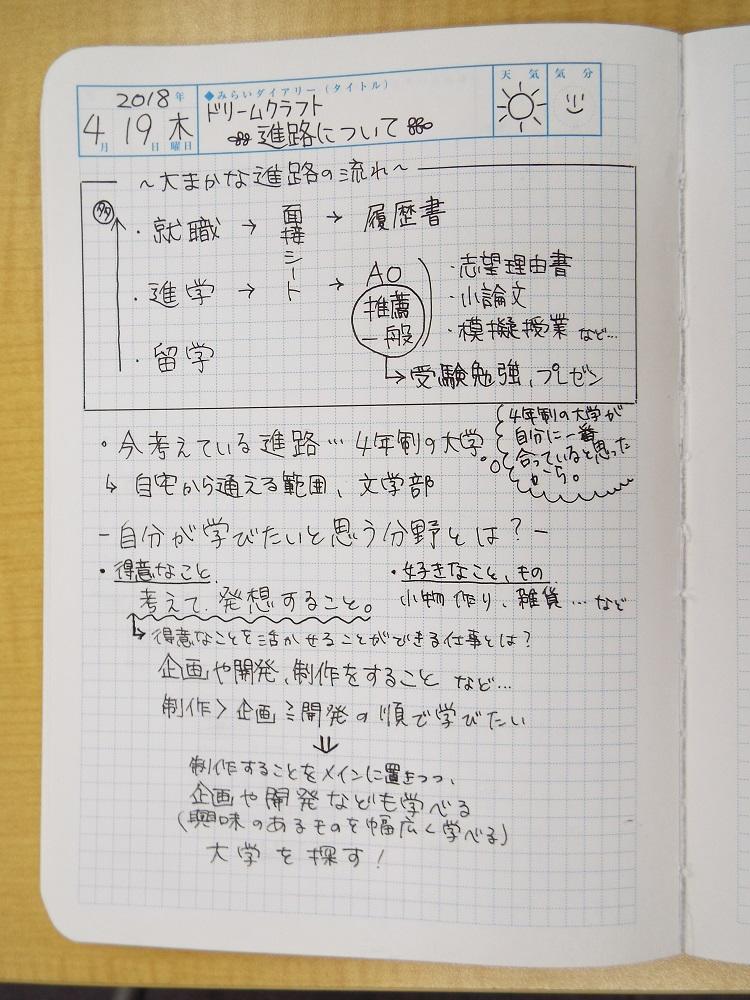 2018年
4月 19日 木曜日
◆みらいダイアリー（タイトル）
ドリームクラフト
進路について
天気 気分
～大まかな進路の流れ～
多
・就職 → 面接シート → 履歴書
・進学 → → AO 推薦 一般
・志望理由書
・小論文
・模擬授業 など…
↳ 受験勉強、プレゼン
・留学
・今考えている進路…4年制の大学
4年制の大学が
自分に一番
合っていると思った
から。
↳ 自宅から通える範囲、文学部
-自分が学びたいと思う分野とは？-
・得意なこと
考えて、発想すること。
・好きなこと、もの
小物作り、雑貨…など
↳得意なことを活かせることができる仕事とは？
企画や開発、制作をすること など…
制作>企画≧開発の順で学びたい
⇓
制作することをメインに置きつつ、
企画や開発なども学べる
(興味のあるものを幅広く学べる)
大学を探す！